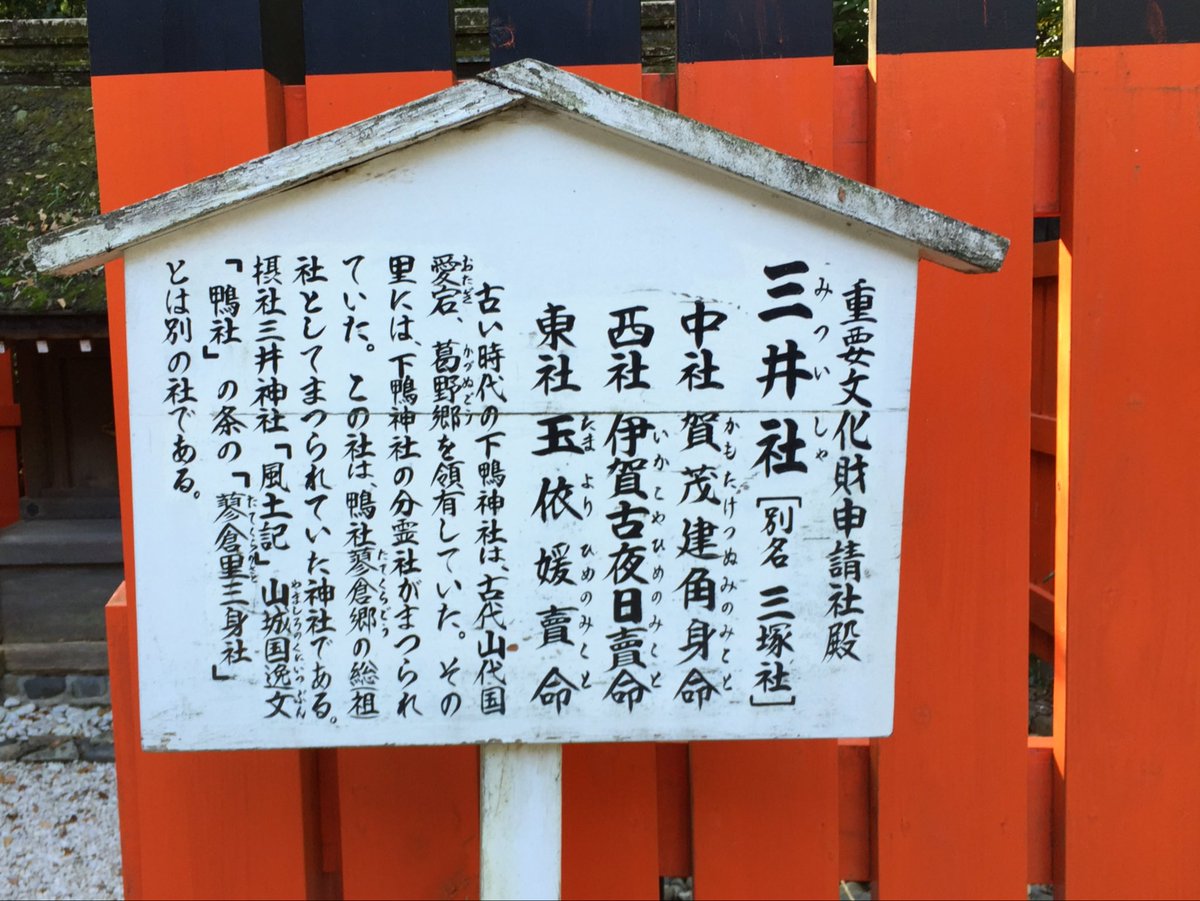 重要文化財申請社殿
三井社［別名 三塚社］
みつい しゃ
中社 賀茂建角身命
かもたけつぬみのみこと
西社 伊賀古夜日賣命
いかこやひめのみこと
東社 玉依媛賣命
たまよりひめのみこと
古い時代の下鴨神社は、古代山代国
愛宕、葛野郷を領有していた。その
おたぎ かづぬごう
里には、下鴨神社の分霊社がまつられ
ていた。この社は、鴨社蓼倉郷の総祖
たてくらごう
社としてまつられていた神社である。
摂社三井神社「風土記」山城国逸文
やましろのくにいつぶん
「鴨社」の条の「蓼倉里三身社」
とは別の社である。